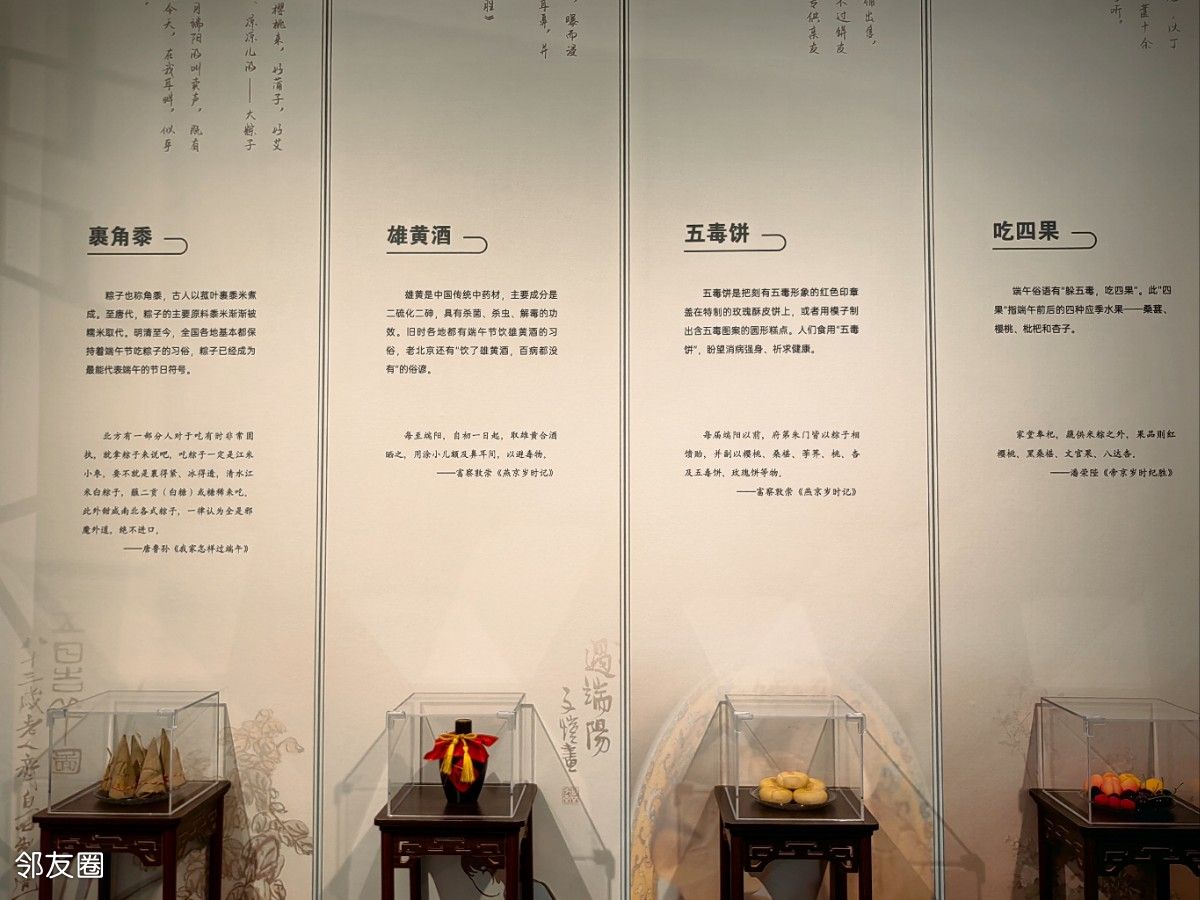 樱桃来，好蒲子，好艾
、凉凉儿的——大粽子
月端阳的叫卖声，既有
今天，在我耳畔，似乎
曝而漫
耳鼻，并
胜》
出售，
不过饼友
专供亲友
裹角黍
粽子也称角黍，古人以菰叶裹黍米煮
成。至唐代，粽子的主要原料黍米渐渐被
糯米取代。明清至今，全国各地基本都保
持着端午节吃粽子的习俗，粽子已经成为
最能代表端午的节日符号。
北方有一部分人对于吃有时非常固
执，就拿粽子来说吧，吃粽子一定是江米
小枣，要不就是裹得紧、冰得透，清水江
米白粽子，蘸二贡（白糖）或糖稀来吃。
此外甜咸南北各式粽子，一律认为全是邪
魔外道，绝不进口。
——唐鲁孙《我家怎样过端午》
雄黄酒
雄黄是中国传统中药材，主要成分是
二硫化二砷，具有杀菌、杀虫、解毒的功
效。旧时各地都有端午节饮雄黄酒的习
俗，老北京还有“饮了雄黄酒，百病都没
有”的俗谚。
每至端阳，自初一日起，取雄黄合酒
晒之，用涂小儿额及鼻耳间，以避毒物。
——富察敦崇《燕京岁时记》
五毒饼
五毒饼是把刻有五毒形象的红色印章
盖在特制的玫瑰酥皮饼上，或者用模子制
出含五毒图案的圆形糕点。人们食用“五毒
饼”，盼望消病强身、祈求健康。
每届端阳以前，府第朱门皆以粽子相
馈贻，并副以樱桃、桑椹、荸荠、桃、杏
及五毒饼、玫瑰饼等物。
——富察敦崇《燕京岁时记》
吃四果
端午俗语有“躲五毒，吃四果”。此“四
果”指端午前后的四种应季水果——桑葚、
樱桃、枇杷和杏子。
家堂奉祀，蔬供米粽之外，果品则红
樱桃、黑桑椹、文官果、八达杏。
——潘荣陛《帝京岁时纪胜》
過端陽
子愷畫
八十三歲老人齊白
邻友圈